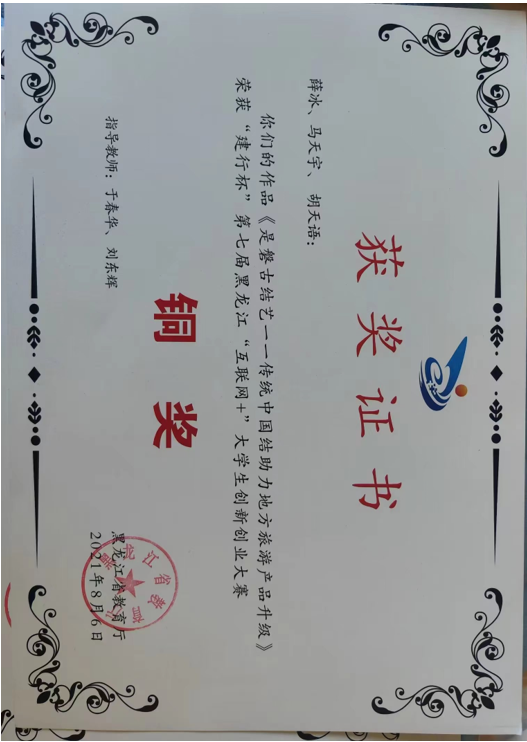 获奖证书
薛冰、马天宇、胡天语：
你们的作品《是磐古结艺——传统中国结助力地方旅游产品升级》
荣获“建行杯”第七届黑龙江“互联网+”大学生创新创业大赛
铜奖
指导教师：于春华、刘东辉
黑龙江省教育厅
2021年8月6日